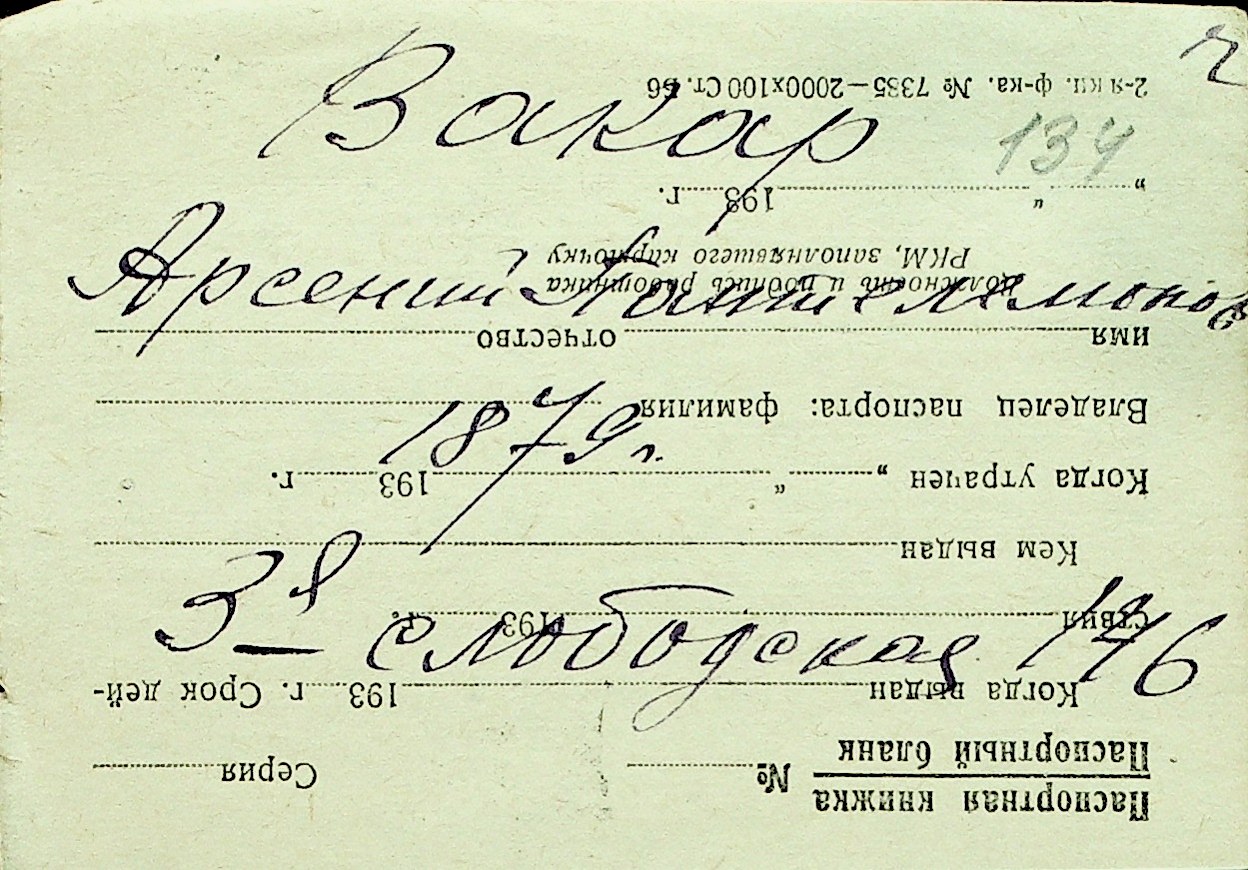 Вакар
134
Арсений Пантелемонов
1879 г.
3я слободская 146
Паспортная книжка
Паспортный бланк
№ Серия
Когда выдан 193 г. Срок дей-
ствия 193 г.
Кем выдан
Когда утрачен „ “ 193 г.
Владелец паспорта: фамилия
имя отчество
Должность и подпись работника
РКМ, заполнявшего карточку
„ “ 193 г.
2-я кн. ф-ка. № 7385—2000х100 Ст. Б6